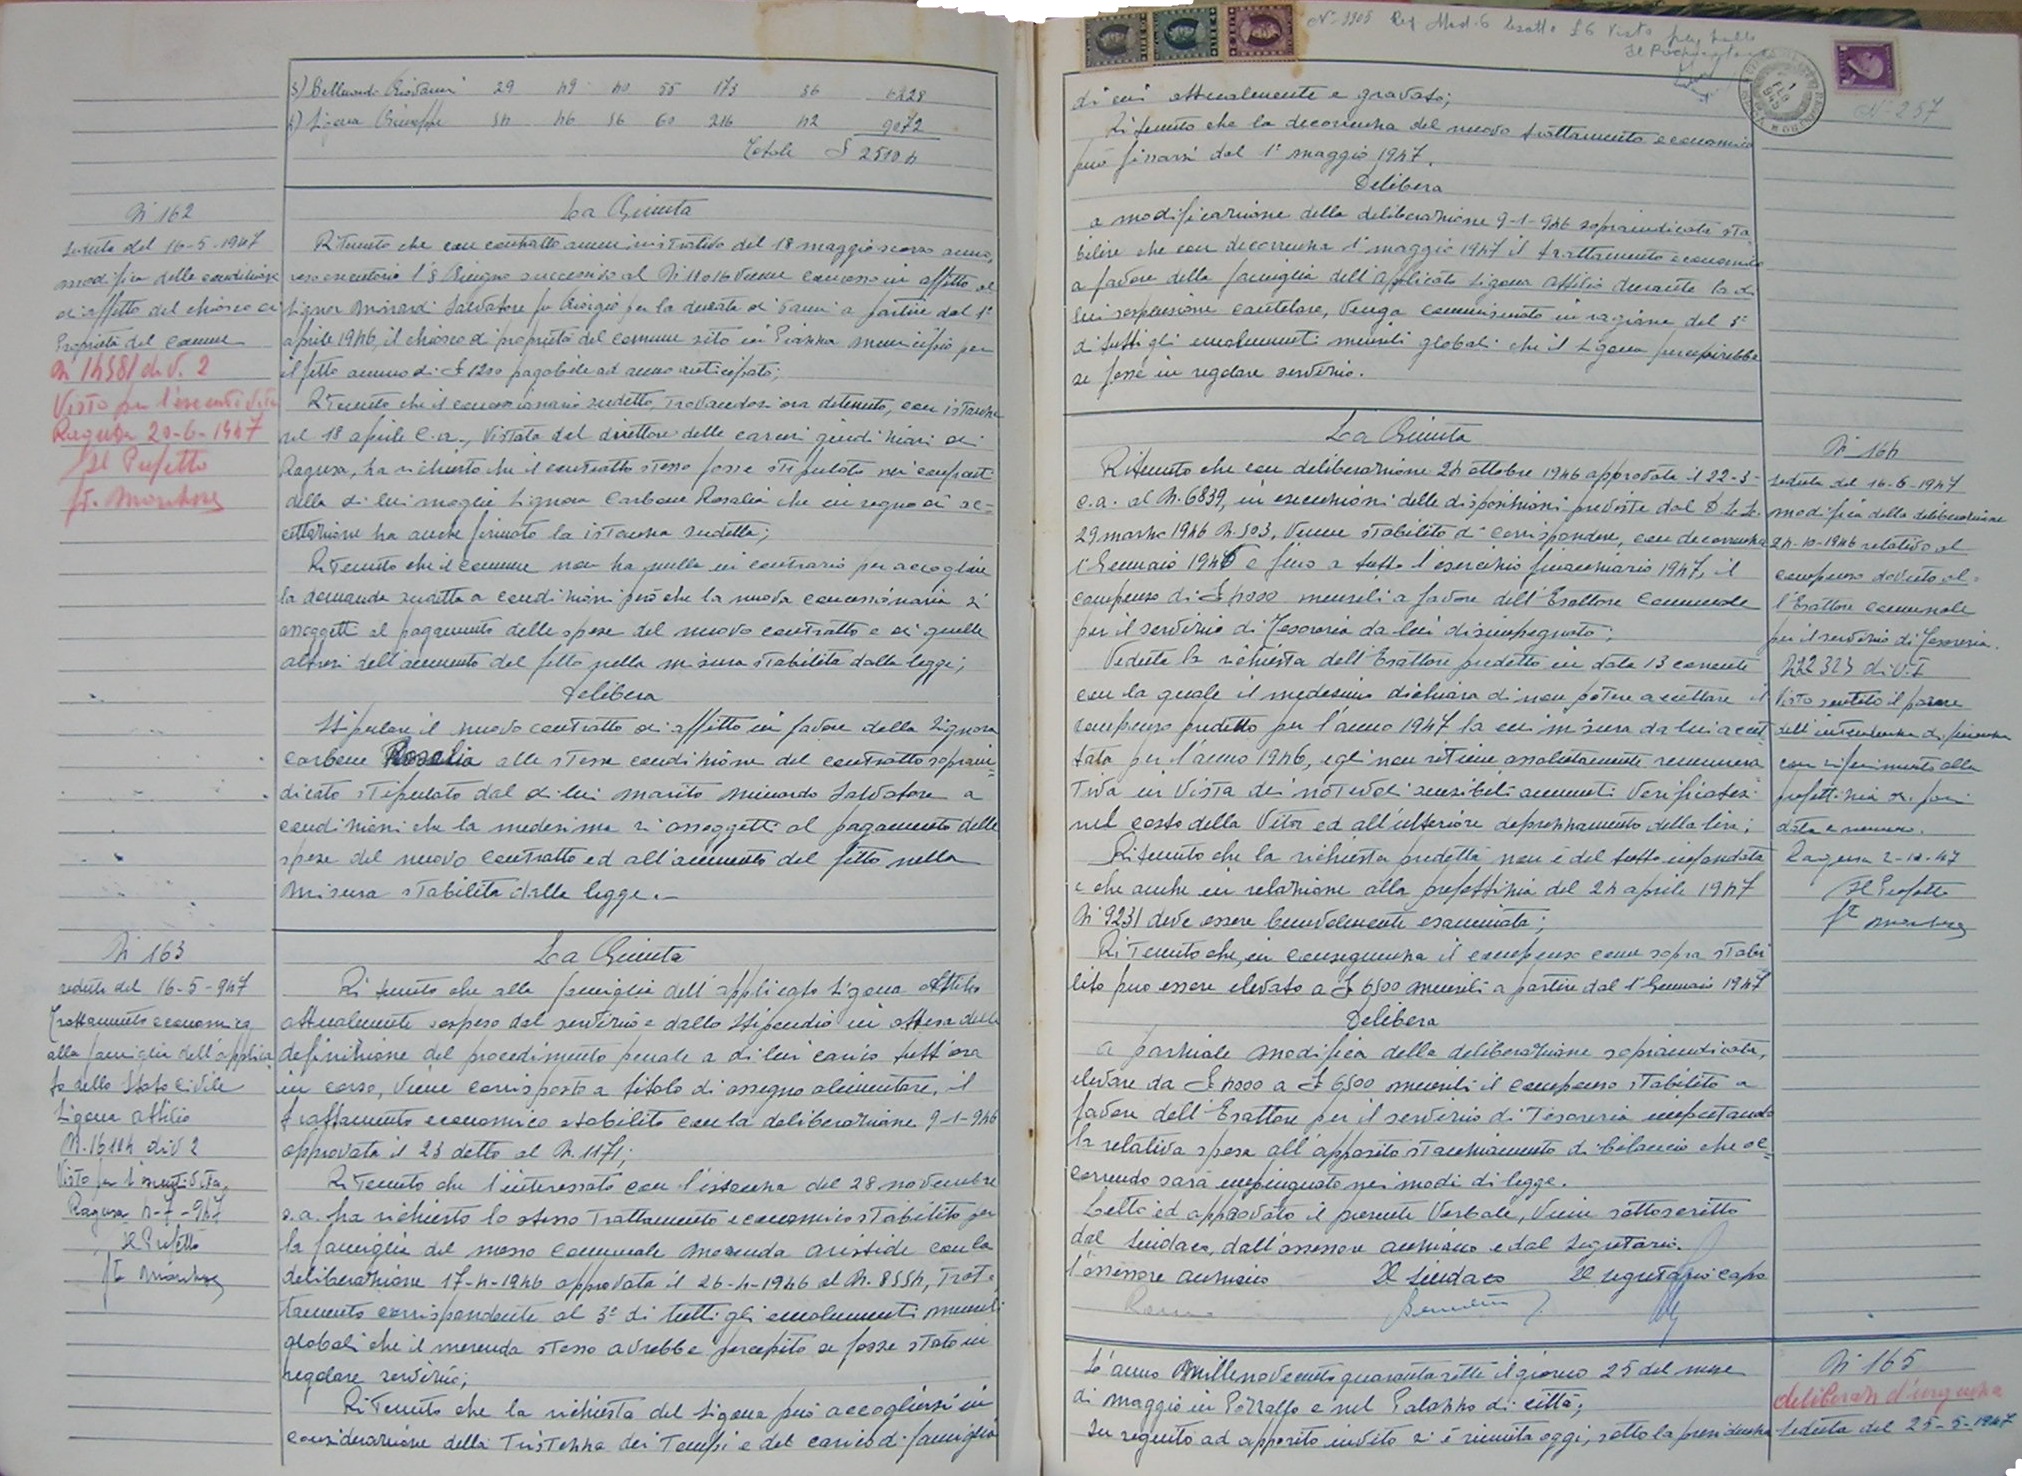 29 49 40 55 173 36 6228
54 46 56 60 216 42 9072
Totale £ 25104
N 162
seduta del 16-5-1947
modifica delle condizioni
di affitto del chiosco di
Proprietà del Comune
N 14581 div. 2
Visto per l'esecutività
Ragusa 20-6-1947
Il Prefetto
La Giunta
Ritenuto che con contratto amministrativo del 18 maggio scorso anno,
reso esecutorio l'8 Giugno successivo al N 11016 venne concesso in affitto al
Signor Salvatore fu Giorgio per la durata di anni a partire dal 1°
aprile 1946, il chiosco di proprietà del comune sito in Piazza Municipio per
il fitto annuo di £ 1200 pagabile ad anno anticipato;
Ritenuto che il concessionario suddetto, trovandosi ora detenuto, con istanza
nel 18 aprile c.a., vistata dal direttore delle carceri giudiziari di
Ragusa, ha richiesto che il contratto stesso fosse stipulato nei confronti
della di lui moglie Signora Carbone Rosalia che in segno di ac=
cettazione ha anche firmato la istanza suddetta;
Ritenuto che il comune non ha nulla in contrario per accogliere
la domanda suddetta a condizioni però che la nuova concessionaria si
assoggetti al pagamento delle spese del nuovo contratto e di quelle
altresì dell'aumento del fitto nella misura stabilita dalla legge;
Delibera
Stipulare il nuovo contratto di affitto in favore della Signora
Carbone Rosalia alle stesse condizione del contratto soprain=
dicato stipulato dal di lui marito Salvatore a
condizioni che la medesima si assoggetti al pagamento delle
spese del nuovo contratto ed all'aumento del fitto nella
misura stabilita dalla legge.-
N 163
seduta del 16-5-947
Trattamento economico
alla famiglia dell'applica
to dello Stato Civile
Ligona Attilio
N. 16104 div 2
Visto per l'esecutività
Ragusa 4-7-947
Il Prefetto
La Giunta
Ritenuto che alla famiglia dell'applicato Ligona Attilio
attualmente sospeso dal servizio e dallo stipendio in attesa della
definizione del procedimento penale a di lui carico tutt'ora
in corso, viene corrisposto a titolo di assegno alimentare, il
trattamento economico stabilito con la deliberazione 9-1-946
approvata il 23 detto al N. 1171;
Ritenuto che l'interessato con l'istanza del 28 novembre
s.a. ha richiesto lo stesso trattamento economico stabilito per
la famiglia del messo Comunale Morenda Aristide con la
deliberazione 17-4-1946 approvata il 26-4-1946 al N. 8554, trat=
tamento corrispondente al 3° di tutti gli emolumenti mensili
globali che il Merenda stesso avrebbe percepito se fosse stato in
regolare servizio;
Ritenuto che la richiesta del Ligona può accogliersi in
considerazione della tristezza dei tempi e del carico di famiglia
N° 1105
N 257
di cui attualmente è gravato;
Ritenuto che la decorrenza del nuovo trattamento economico
può fissarsi dal 1° maggio 1947.
Delibera
a modificazione della deliberazione 9-1-946 sopraindicata sta
bilire che con decorrenza 1° maggio 1947 il trattamento economico
a favore della famiglia dell'applicato Ligona Attilio durante la di
lui sospensione cautelare, venga commisurato in ragione del 3°
di tutti gli emolumenti mensili globali che il Ligona percepirebbe
se fosse in regolare servizio.
La Giunta
Ritenuto che con deliberazione 24 ottobre 1946 approvata il 22-3-
c.a. al N. 6839, in esecuzioni delle disposizioni previste dal D.L.L.
29 marzo 1946 N. 503, venne stabilito di corrispondere, con decorrenza
1° Gennaio 1946 e fino a tutto l'esercizio finanziario 1947, il
compenso di £ 4000 mensili a favore dell'Esattore Comunale
per il servizio di Tesoreria da lui disimpegnato;
Veduta la richiesta dell'Esattore predetto in data 13 corrente
con la quale il medesimo dichiara di non potere accettare il
compenso predetto per l'anno 1947 la cui misura da lui accet
tata per l'anno 1946, egli non ritiene assolutamente remunera
tiva in vista dei notevoli sensibili aumenti verificatesi
nel costo della vita ed all'ulteriore deprezzamento della lira;
Ritenuto che la richiesta predetta non è del tutto infondata
e che anche in relazione alla prefettizia del 24 aprile 1947
N 9231 deve essere benevolmente esaminata;
Ritenuto che, in conseguenza il compenso come sopra stabi
lito può essere elevato a £ 6500 mensili a partire dal 1° Gennaio 1947
Delibera
a parziale modifica della deliberazione sopraindicata,
elevare da £ 4000 a £ 6500 mensili il compenso stabilito a
favore dell'Esattore per il servizio di Tesoreria imputando
la relativa spesa all'apposito stanziamento di bilancio che oc=
correndo sarà impinguato nei modi di legge.
Letto ed approvato il presente Verbale, viene sottoscritto
dal Sindaco, dall'assessore anziano e dal Segretario.
l'assessore anziano Il Sindaco Il segretario capo
N 164
seduta del 16-5-1947
modifica della deliberazione
24-10-1946 relativa al
compenso dovuto al=
l'Esattore comunale
per il servizio di Tesoreria.
N 22323 div. I
Visto sentito il parere
dell'intendenza di finanza
con riferimento alla
prefettizia di pari
data e numero.
Il Prefetto
L'anno millenovecentoquarantasette il giorno 25 del mese
di maggio in Pozzallo e nel Palazzo di città;
In seguito ad apposito invito si è riunita oggi, sotto la presidenza
N 165
deliberaz d'urgenza
Seduta del 25-5-1947